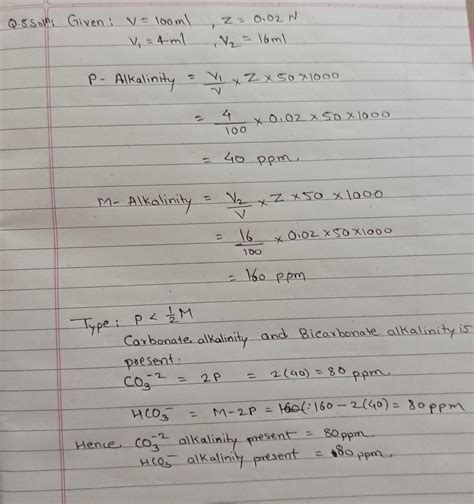 Q.5 Soln: Given: V = 100ml , Z = 0.02 N
V₁ = 4ml , V₂ = 16ml
P- Alkalinity = V₁/V × Z × 50 × 1000
= 4/100 × 0.02 × 50 × 1000
= 40 ppm.
M- Alkalinity = V₂/V × Z × 50 × 1000
= 16/100 × 0.02 × 50 × 1000
= 160 ppm
Type: P < ½M
Carbonate alkalinity and Bicarbonate alkalinity is
present.
CO₃⁻² = 2P = 2(40) = 80 ppm
HCO₃⁻ = M-2P = 160 - 2(40) = 80 ppm
Hence, CO₃⁻² alkalinity present = 80ppm
HCO₃⁻ alkalinity present = 80 ppm.